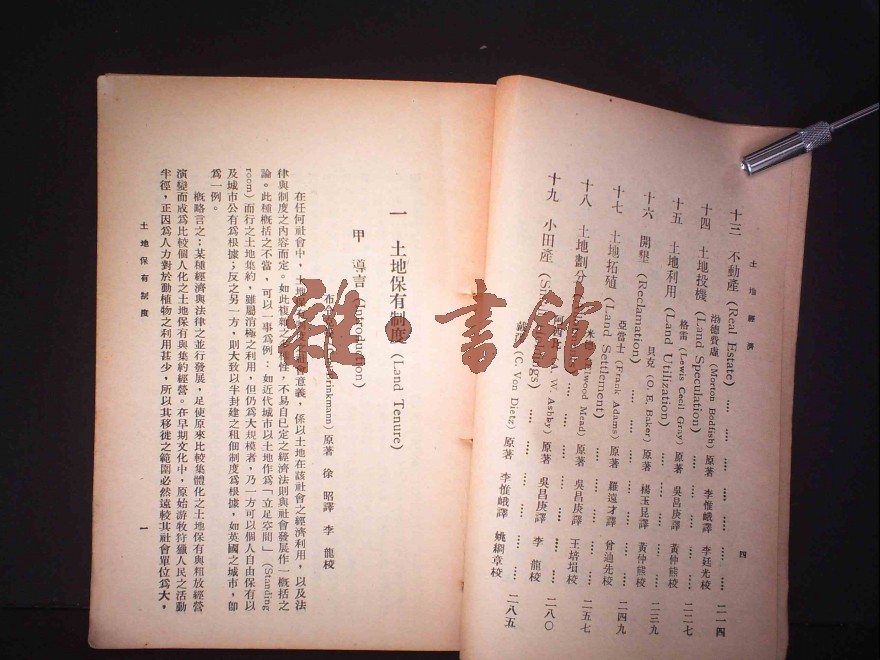 土地經濟
十三 不動產 (Real Estate) ‥‥ ‥‥ ‥‥ ‥‥ ‥‥ 二一四
渤德費虛 (Morton Bodfish) 原著 李惟峨譯 李廷光校
十四 土地投機 (Land Speculation) ‥‥ ‥‥ ‥‥ 二二七
格雷 (Lewis Cecil Gray) 原著 吳昌庚譯 黃仲熊校
十五 土地利用 (Land Utilization) ‥‥ ‥‥ ‥‥ 二三九
貝克 (O. E. Baker) 原著 楊玉昆譯 黃仲熊校
十六 開墾 (Reclamation)
亞當士 (Frank Adams) 原著 羅遠才譯 曾迪先校
十七 土地拓殖 (Land Settlement) ‥‥ ‥‥ 二四九
(Elwood Mead) 原著 吳昌庚譯 王培塤校
十八 土地劃分 ‥‥ ‥‥ 二五七
(A. W. Ashby) 原著 吳昌庚譯 李 龍校
十九 小田產 ‥‥ ‥‥ 二八〇
(C. Von Dietz) 原著 李惟峨譯 姚綱章校
二八五
四
一 土地保有制度 (Land Tenure)
甲 導言 (Introduction)
Brinkmann) 原著 徐 昭譯 李 龍校
在任何社會中，土地 社會意義，係以土地在該社會之經濟利用，以及法
律與制度之內容而定。如此複雜之 性，不易自已定之經濟法則與社會發展作一概括之
論。此種概括之不當，可以一事為例：如近代城市以土地作爲「立足空間」(Standing
room) 而行之土地集約，雖屬消極之利用，但仍爲大規模者，乃一方可以個人自由保有以
及城市公有爲根據；反之另一方，則大致以半封建之租佃制度爲根據，如英國之城市，卽
爲一例。
概略言之：某種經濟與法律之並行發展，足使原來比較集體化之土地保有與粗放經營
演變而成爲比較個人化之土地保有與集約經營。在早期文化中，原始游牧狩獵人民之活動
半徑，正因爲人力對於動植物之利用甚少，所以其移徙之範圍必然遠較其社會單位爲大，
土地保有制度
一
雅·書館